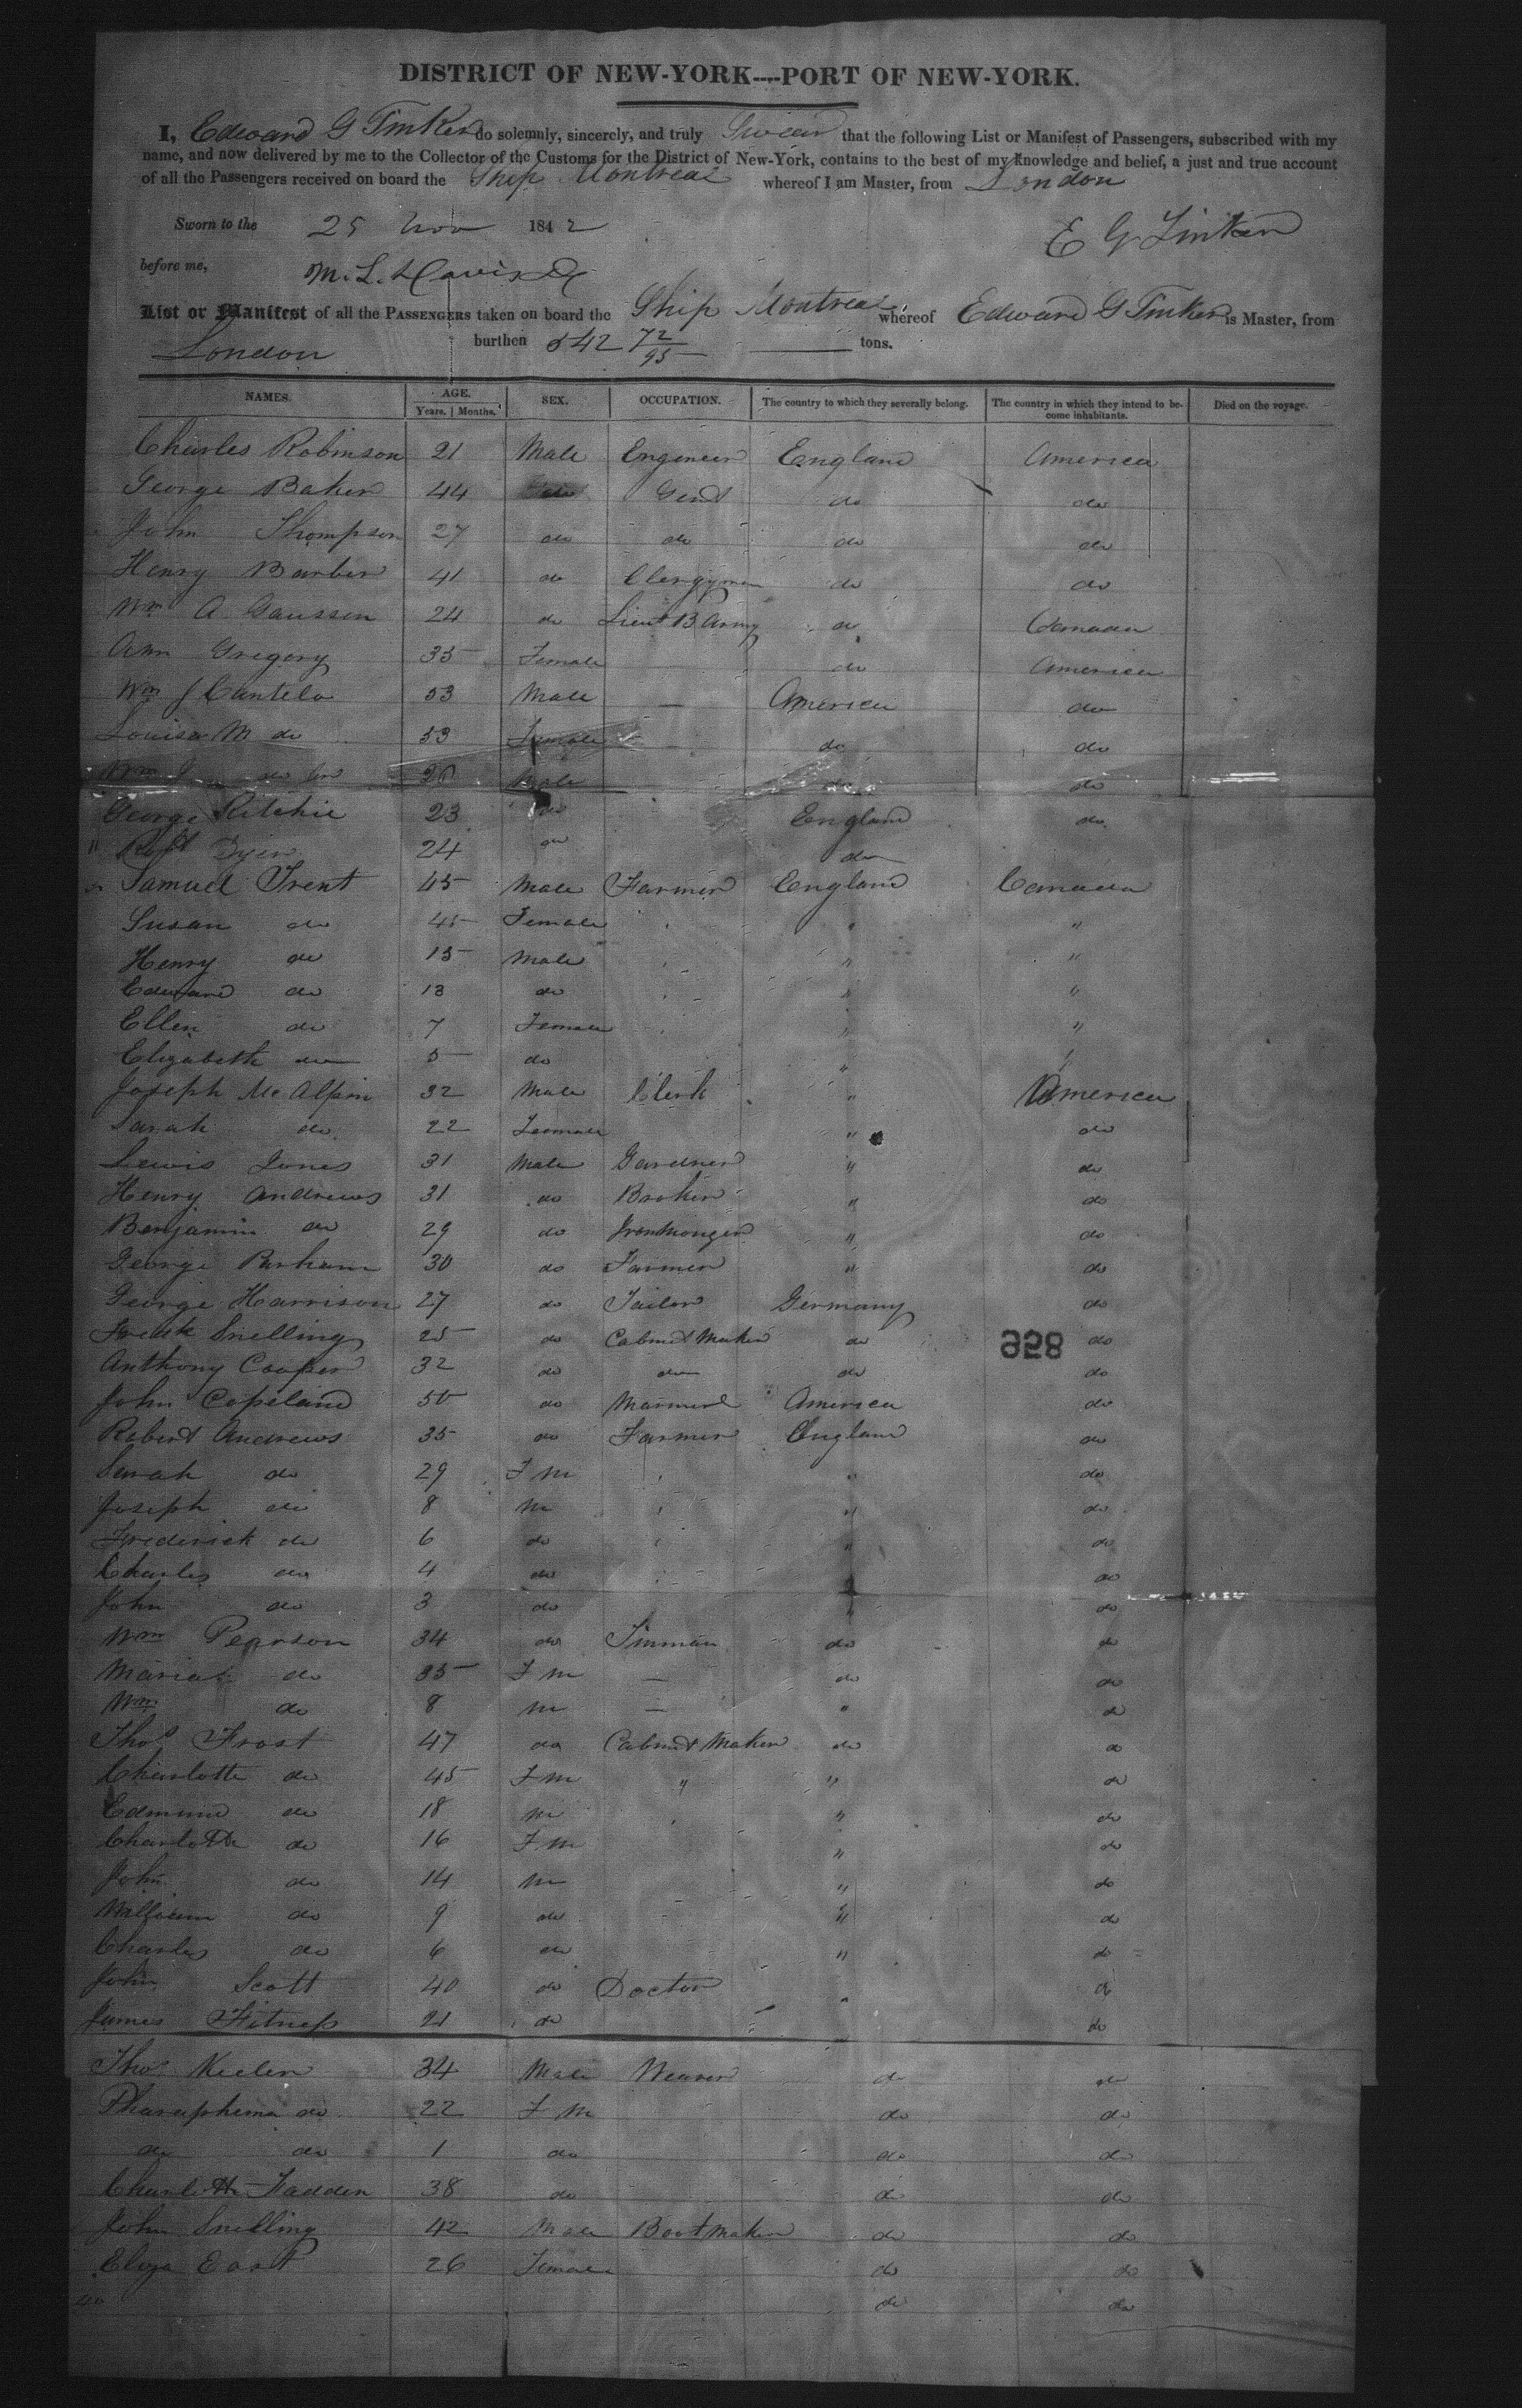 DISTRICT OF NEW-YORK----PORT OF NEW-YORK.
I, Edward G Tinker do solemnly, sincerely, and truly Swear that the following List or Manifest of Passengers, subscribed with my
name, and now delivered by me to the Collector of the Customs for the District of New-York, contains to the best of my knowledge and belief, a just and true account
of all the Passengers received on board the Ship Montreal whereof I am Master, from London
Sworn to the 25 Nov 1842 E G Tinker
before me, M. L. Davis
List or Manifest of all the PASSENGERS taken on board the Ship Montreal whereof Edward G Tinker is Master, from
London burthen 542 72/95 tons.
NAMES. AGE. Years. Months. SEX. OCCUPATION. The country to which they severally belong. The country in which they intend to become inhabitants. Died on the voyage.
Charles Robinson 21 Male Engineer England America
George Baker 44 Gent do do
John Thompson 27 do do do do
Henry Barber 41 do Clergyman do do
Wm A. Gaussen 24 do Lieut B Army do Canada
Ann Gregory 35 Female do America
Wm J Cantelo 53 Male — America do
Louisa M do 53 Female do do
Wm J do 20 Male do do
George Ritchie 23 do England do
" Robt 24 do do
Samuel Trent 45 Male Farmer England Canada
Susan do 45 Female " "
Henry do 15 Male " "
Edward do 13 do " "
Ellen do 7 Female " "
Elizabeth do 5 do " "
Joseph McAlpin 32 Male Clerk " America
Sarah do 22 Female " do
Lewis Jones 31 Male Gardner " do
Henry Andrews 31 do Broker " do
Benjamin do 29 do Ironmonger " do
George Parham 30 do Farmer " do
George Harrison 27 do Tailor Germany do
Fredk Snelling 25 do Cabinet Maker do do
858
Anthony Cooper 32 do do do do
John Copeland 50 do Mariner America do
Robert Andrews 35 do Farmer England do
Sarah do 29 F m " do
Joseph do 8 m " do
Frederick do 6 do " do
Charles do 4 do " do
John do 3 do " do
Wm Pearson 34 do Tinman do do
Maria do 35 F m — do do
Wm do 8 m — " do
Thos Frost 47 do Cabinet Maker do do
Charlotte do 45 F m " " do
Edmund do 18 m " do
Charlotte do 16 F m " do
John do 14 m " do
William do 9 do " do
Charles do 6 do " do
John Scott 40 do Doctor " do
James Fitness 21 do do
Thos 34 Male Weaver do do
Pharaphema do 22 F m do do
do do 1 do do do
Charlotte Fadden 38 do do do
John Snelling 42 Male Bootmaker do do
Eliza East 26 Female do do
do do